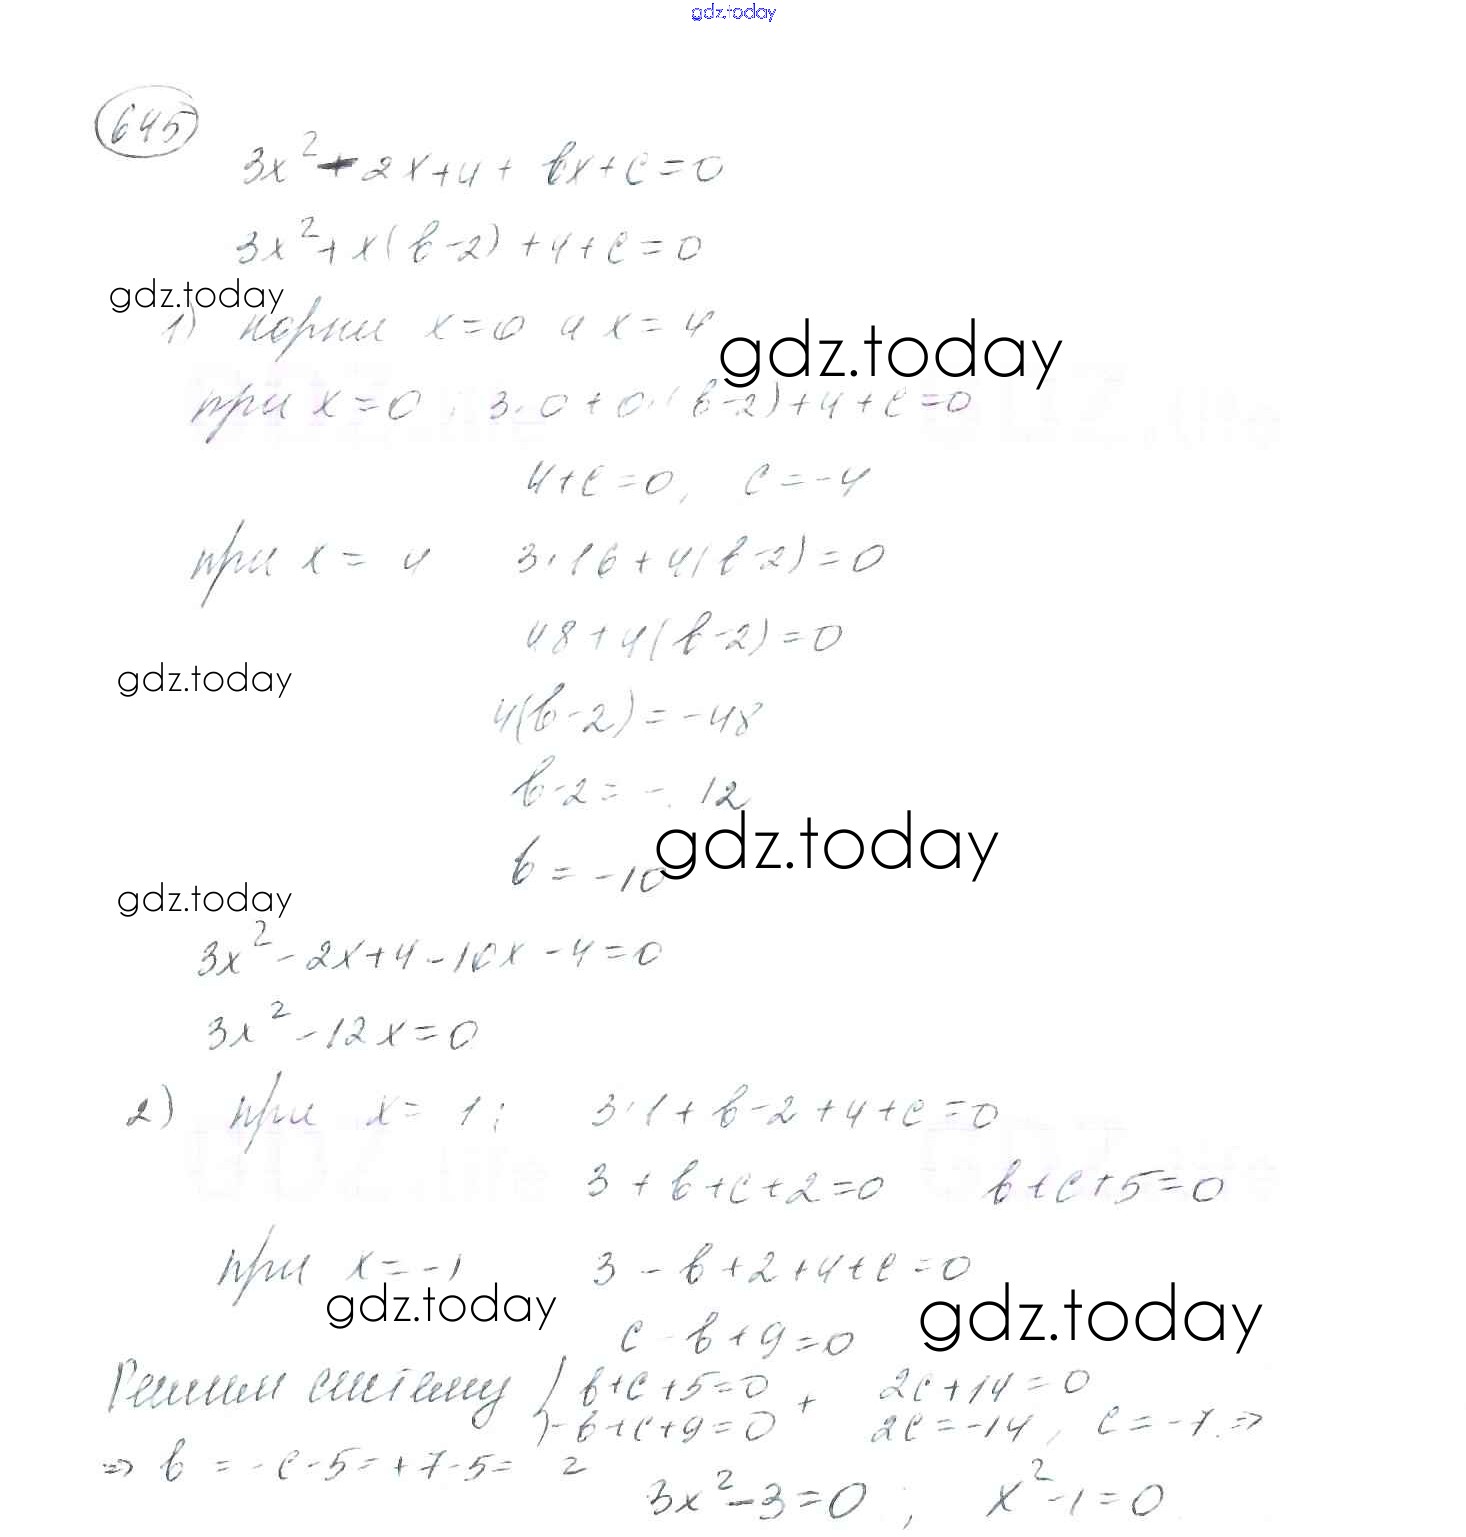 gdz.today
645
3x² - 2x + 4 + bx + c = 0
3x² + x(b-2) + 4 + c = 0
gdz.today
1) корни x = 0 и x = 4
gdz.today
при x = 0 : 3·0 + 0·(b-2) + 4 + c = 0
4 + c = 0, c = -4
при x = 4 3·16 + 4(b-2) = 0
48 + 4(b-2) = 0
gdz.today
4(b-2) = -48
b-2 = -12
gdz.today
b = -10
gdz.today
3x² - 2x + 4 - 10x - 4 = 0
3x² - 12x = 0
2) при x = 1: 3·1 + b - 2 + 4 + c = 0
3 + b + c + 2 = 0 b + c + 5 = 0
при x = -1 3 - b + 2 + 4 + c = 0
gdz.today gdz.today
c - b + 9 = 0
Решим систему { b + c + 5 = 0 + 2c + 14 = 0
-b + c + 9 = 0 2c = -14, c = -7 ⇒
⇒ b = -c - 5 = +7 - 5 = 2
3x² - 3 = 0 ; x² - 1 = 0